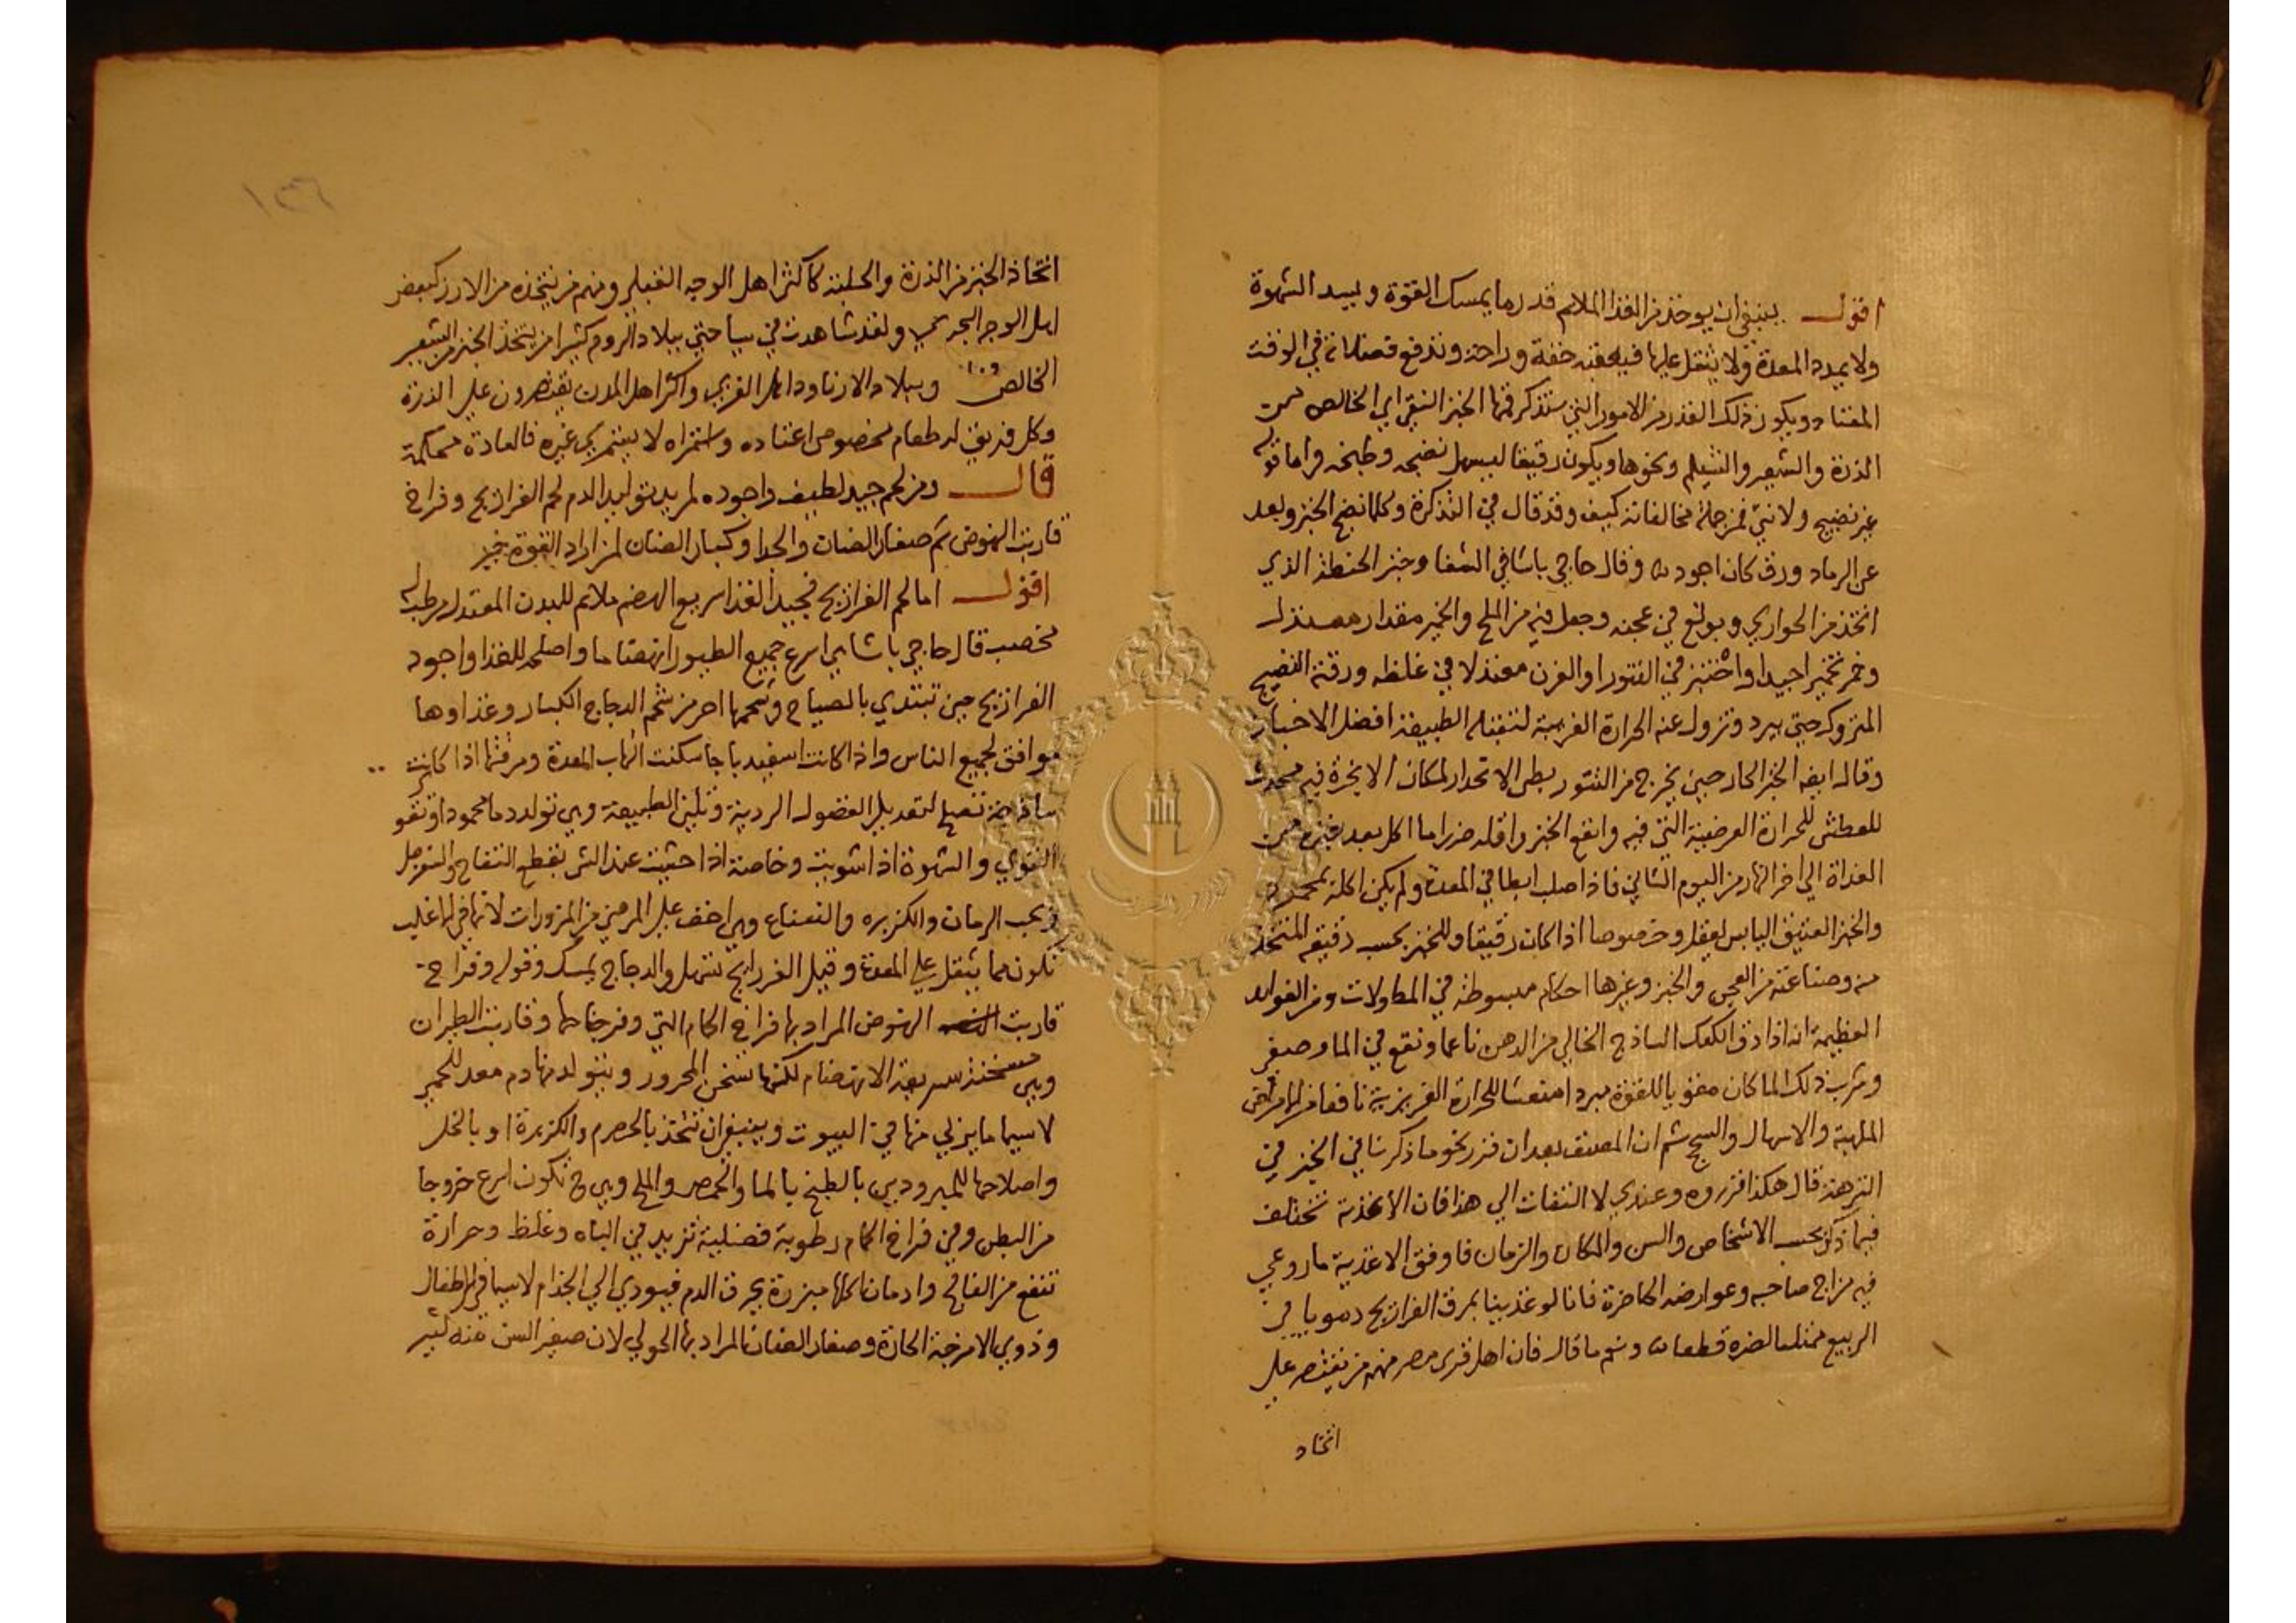 اقول ينبغي ان يوخذ من الغذا الملايم قدر ما يمسك القوة ويسد الشهوة
ولا يمدد المعدة ولا يثقل عليها فيعقبه خفة وراحة وتدفع فضلاته في الوقت
المعتاد ويكون ذلك القدر من الامور التي ستذكر فمنها الخبز النقي اي الخالص من
الذرة والشعير والشيلم ونحوها ويكون رقيقا ليسهل نضجه وطبخه واما قوله
غير نضيج ولا ني فمن جملة مخالفاته كيف وقد قال في التذكرة وكلما نضج الخبز وبعد
عن الرماد ورق كان اجود وقال حاجي باشا في الشفا وخبز الحنطة الذي
اتخذ من الحواري وبولغ في عجنه وجعل فيه من الملح والخمير مقدار معتدل
وخمر تخميرا جيدا واختبز في التنور او الفرن معتدلا في غلظه ورقته النضيج
المتروك حتي يبرد وتزول عنه الحرارة الغريبة لتقبله الطبيعة افضل الاخباز
وقال ايضا الخبز الحار حين يخرج من التنور بطي الانحدار لمكان الابخرة فيه محدث
للعطش للحرارة العرضية التي فيه وانفع الخبز واقله ضررا ما اكل بعد خبزه من
الغداة الي اخر النهار من اليوم الثاني فاذا صلب ابطا في المعدة ولم يكن اكله بمحمود
والخبز العتيق اليابس يعقل وخصوصا اذا كان رقيقا وللخبز بحسب دقيقه المتخذ
منه وصناعته من العجن والخبز وغيرها احكام مبسوطة في المطولات ومن الفوايد
العظيمة انه اذا دق الكعك الساذج الخالي من الدهن ناعما ونقع في الما وصفي
وشرب ذلك الما كان مقويا للقوة مبردا منعشا للحرارة الغريزية نافعا من الامراض
الملهبة والاسهال والسحج ثم ان المصنف بعد ان قرر نحو ما ذكرنا في الخبز في
النزهة قال هكذا قرروه وعندي لا التفات الي هذا فان الاغذية تختلف
فيما ذكر بحسب الاشخاص والسن والمكان والزمان فاوفق الاغذية ما روعي
فيه مزاج صاحبه وعوارضه الحاضرة فانا لو غذينا بمرق الفراريج دمويا في
الربيع ممتليا لضره قطعا ونعم ما قال فان اهل قري مصر منهم من يقتصر علي
اتخاد
١٣٦
اتخاذ الخبز من الذرة والحلبة كاكثر اهل الوجه القبلي ومنهم من يتخذه من الارز كبعض
اهل الوجه البحري ولقد شاهدت في سياحتي ببلاد الروم كثيرا من يتخذ الخبز من الشعير
الخالص وببلاد الارناود اهل القري واكثر اهل المدن يقتصرون علي الذرة
وكل فريق له طعام مخصوص اعتاده واستمراه لا يستمري غيره فالعادة محكمة
قال ومن لحم جيد لطيف واجوده لمريد توليد الدم لحم الفراريج وفراخ
قاربت النهوض ثم صغار الضان والجدا وكبار الضان لمن اراد القوة خير
اقول اما لحم الفراريج فجيد الغذا سريع الهضم ملايم للبدن المعتدل مرطب له
مخصب قال حاجي باشا هي اسرع جميع الطيور انهضاما واصلحه للغذا واجود
الفراريج حين تبتدي بالصياح وشحمها احر من شحم الدجاج الكبار وغذاوها
موافق لجميع الناس واذا كانت اسفيدباجا سكنت التهاب المعدة ومرقتها اذا كانت
ساذجة تصلح لتعديل الفضول الردية وتلين الطبيعة وهي تولد دما محمودا وتقو
القوي والشهوة اذا شويت وخاصة اذا حشيت عند الشي بقطع التفاح والسفرجل
وبحب الرمان والكزبره والنعناع وهي اخف علي المرضي من المزورات لانها في الغالب
تكون مما يثقل علي المعدة وقيل الفراريج تسهل والدجاج يمسك وقوله وفراخ
قاربت النهوض المراد بها فراخ الحمام التي وفر جناحها وقاربت الطيران
وهي مسخنة سريعة الانهضام لكنها تسخن المحرور ويتولد منها دم معد للحمي
لا سيما ما يربي منها في البيوت وينبغي ان تتخذ بالحصرم والكزبرة او بالخل
واصلاحها للمبرودين بالطبخ بالما والحمص والملح وهي ح تكون اسرع خروجا
من البطن وفي فراخ الحمام رطوبة فضلية تزيد في الباه وغلظ وحرارة
تنفع من الفالج وادمان اكلها مبزرة يحرق الدم فيودي الي الجذام لا سيما في الاطفال
وذوي الامزجة الحارة وصغار الضان المراد بها الحولي لان صغير السن منه كثير